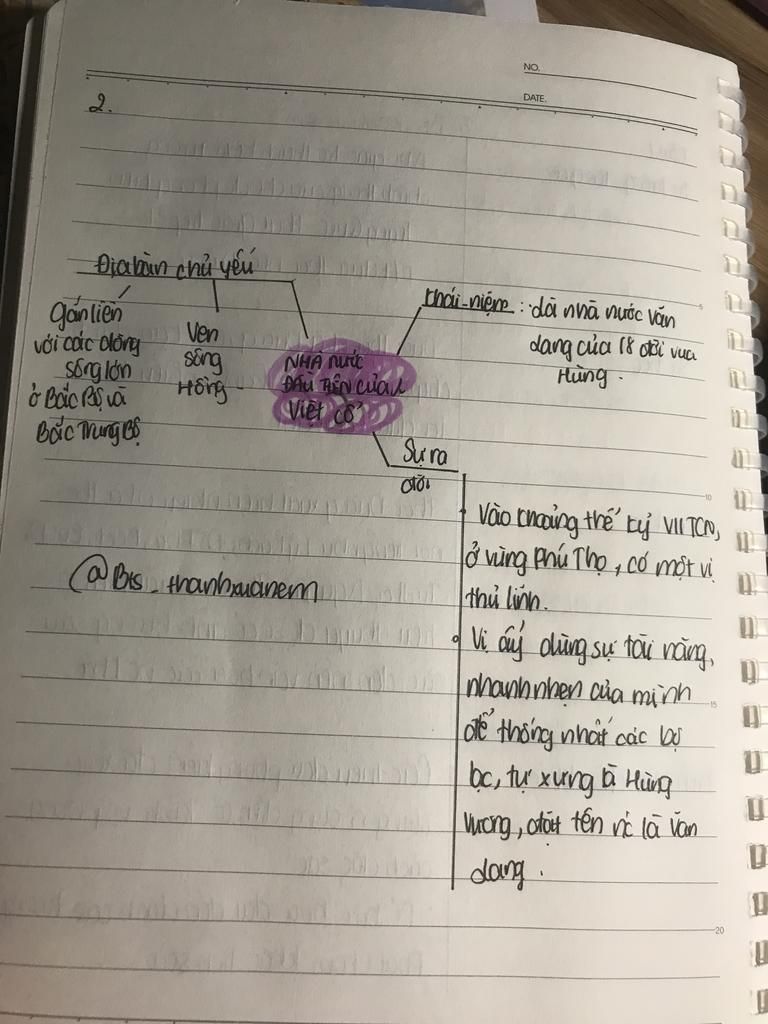 NO.
DATE.
2.
Địa bàn chủ yếu
gắn liền
với các dòng
sông lớn
ở Bắc Bộ và
Bắc Trung Bộ
Ven
sông
Hồng
NHÀ NƯỚC
ĐẦU TIÊN CỦA
Việt cổ
khái niệm : là nhà nước Văn
dang của 18 đời vua
Hùng.
Sự ra
đời
Vào khoảng thế kỷ VII TCN,
ở vùng Phú Thọ, có một vị
thủ lĩnh.
Vị ấy dùng sự tài năng,
nhanh nhẹn của mình
để thống nhất các bộ
lạc, tự xưng là Hùng
Vương, đặt tên nc là Văn
dang.
@Bts_thanhxuanem
5
10
15
20